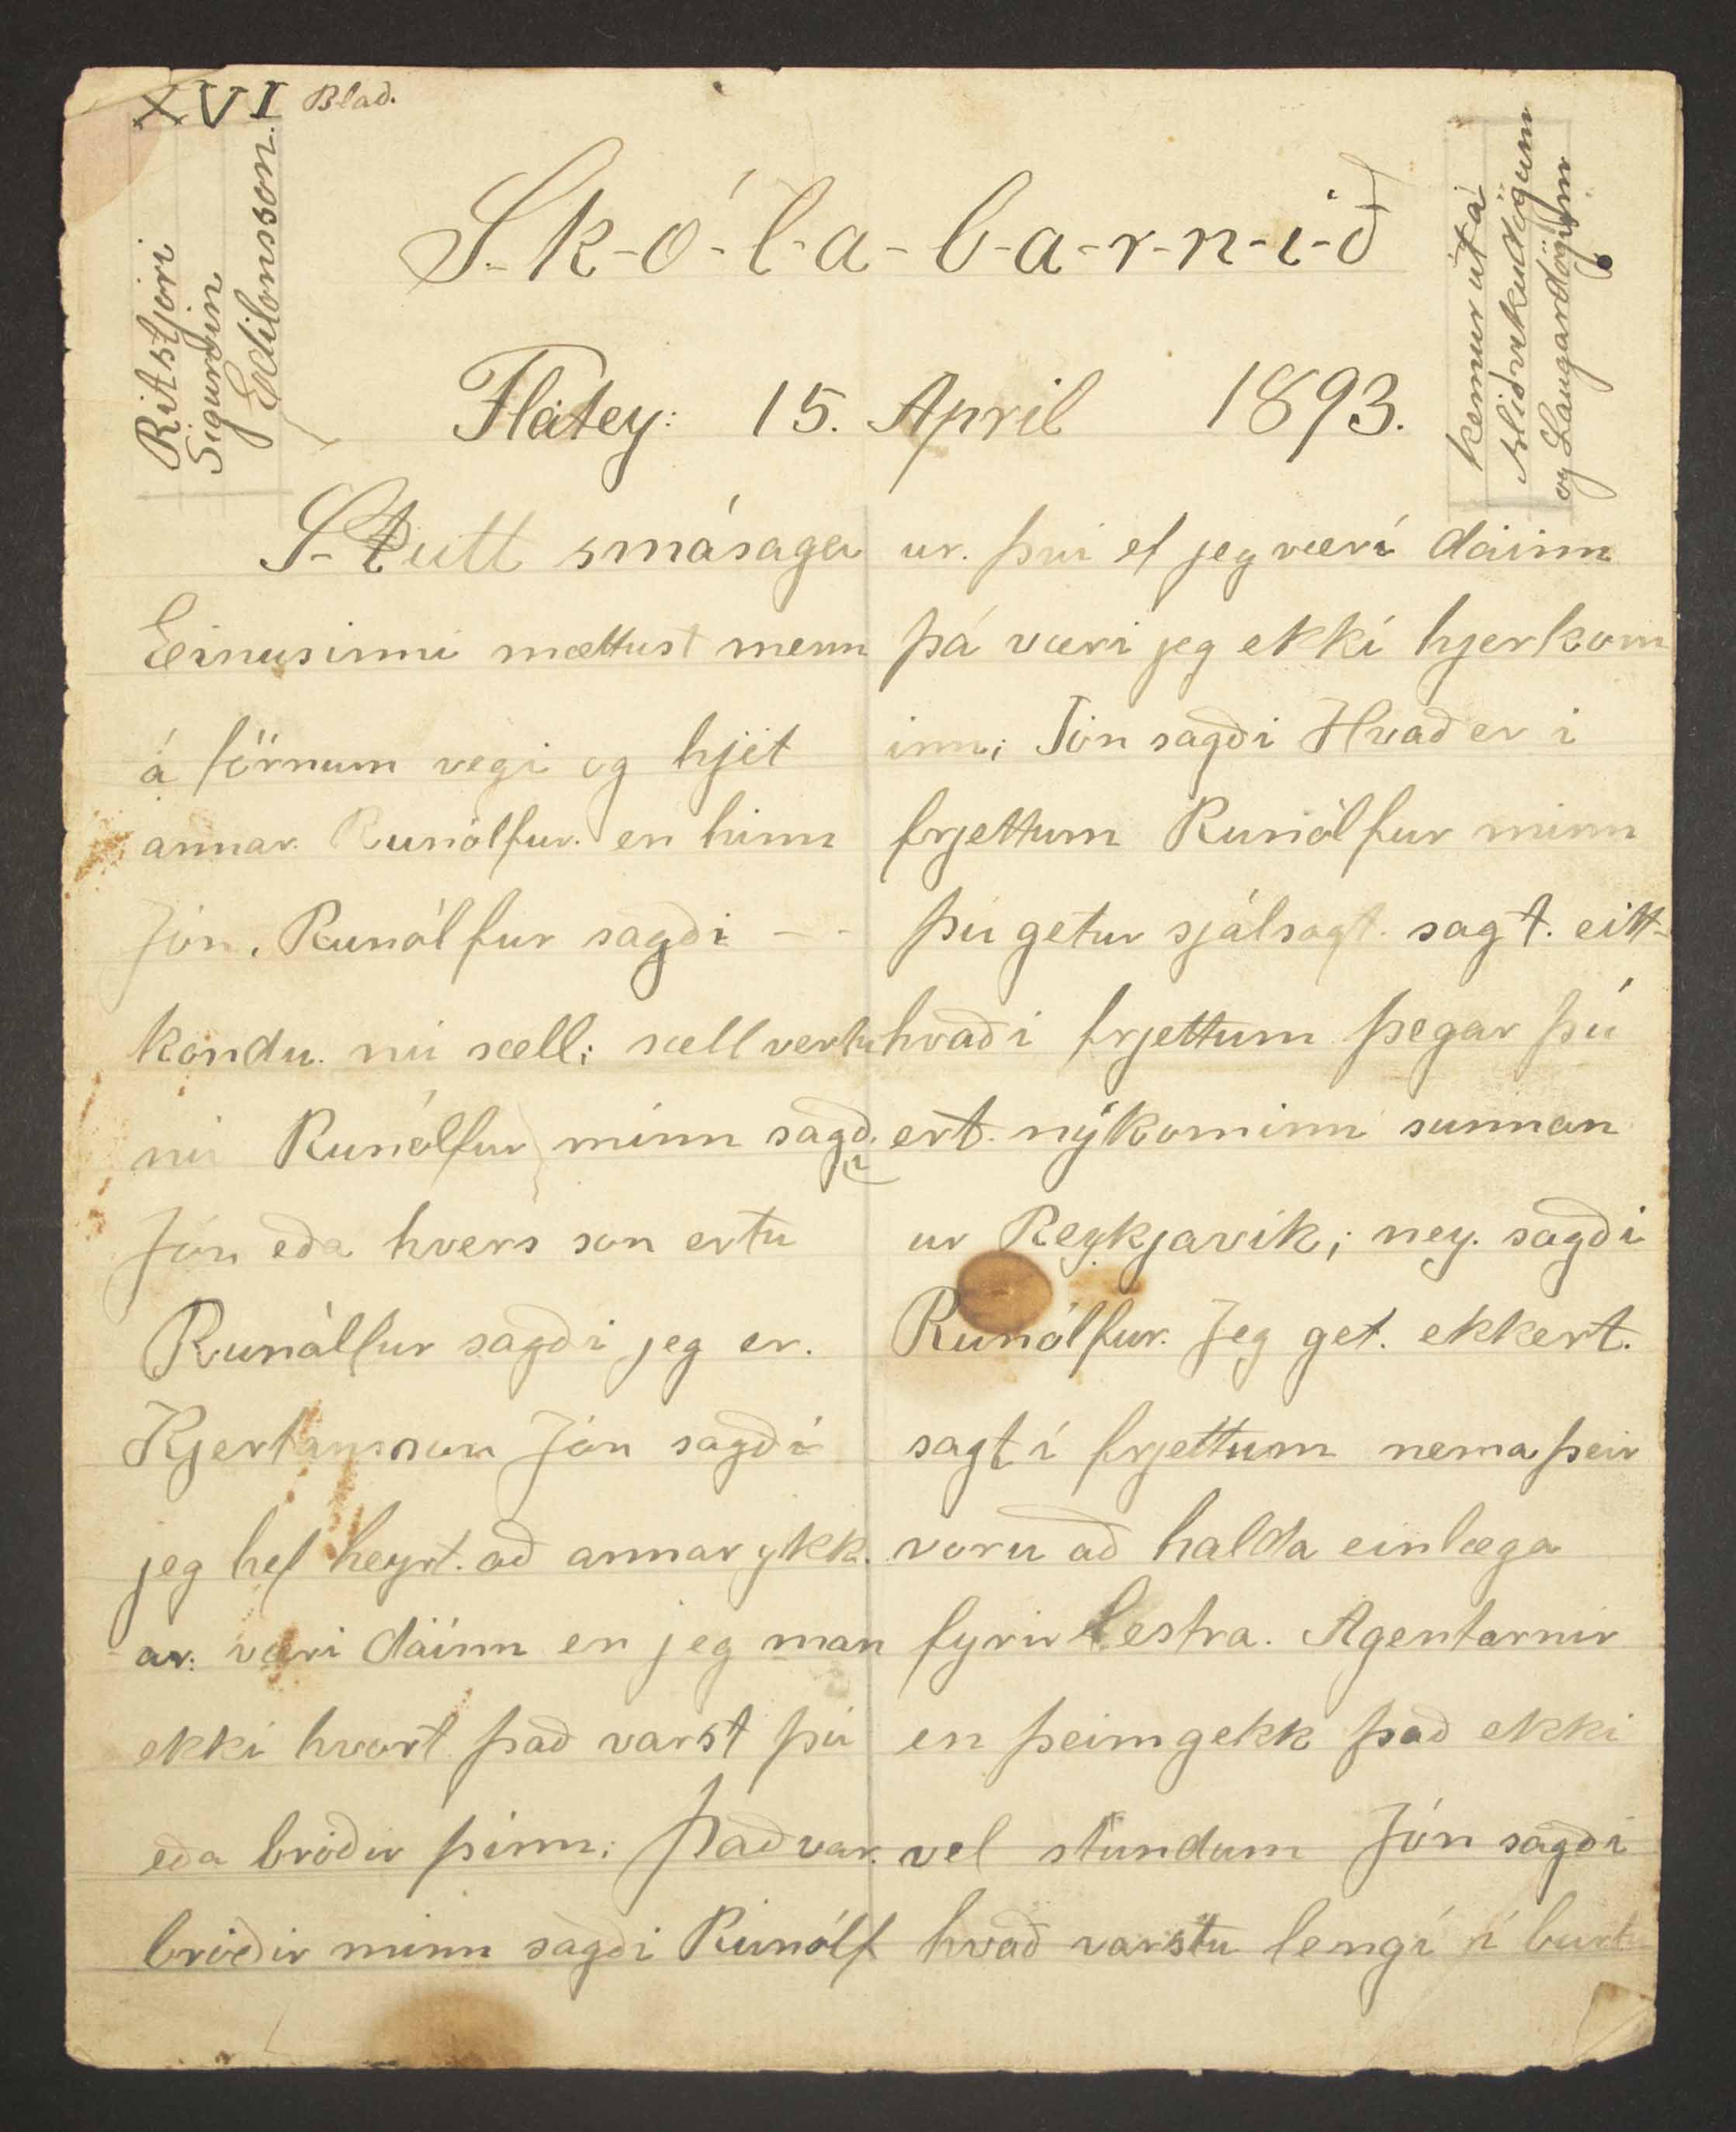 XVI Blað.
Ritstjóri
Sigurður
Edilonsson.
S-k-ó-l-a-b-a-r-n-i-ð
kemur út á
Miðvikudögum
og Laugardögum
Flatey: 15. April 1893.
Stutt smásaga
Einusinni mættust menn
á förnum vegi og hjét
annar. Runólfur. en hinn
Jón. Runólfur sagði - -
kondu. nú sæll; sæll vertu
nú Runólfur minn sagði
Jón eða hvers son ertu
Runólfur sagði jeg er.
Kjertansson Jón sagði
jeg hef heyrt. að annar ykk.
ar. væri dáinn en jeg man
ekki hvort það varst þú
eða bróðir þinn; það var.
bróðir minn sagði Runólf
ur. því ef jeg væri dáinn
þá væri jeg ekki hjer kom
inn; Jón sagði Hvað er i
frjettum Runólfur minn
þú getur sjálsagt. sagt. eitt-
hvað i frjettum þegar þú
ert. nýkominn sunnan
ur Reykjavík; ney. sagði
Runólfur. Jeg get. ekkert.
sagt í frjettum nema þeir
voru að halda einlæga
fyrir lestra. Agentarnir
en þeim gekk það ekki
vel stundum Jón sagði
hvað varstu lengí í burtu